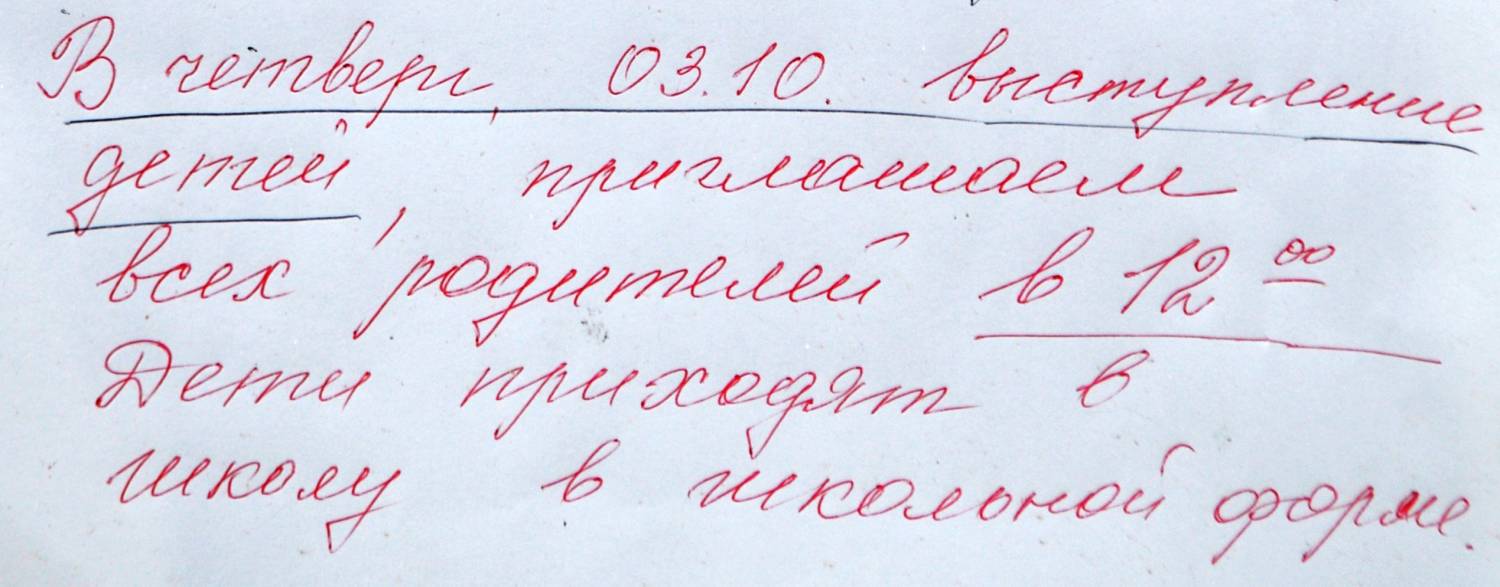 В четверг, 03.10. выступление
детей, приглашаем
всех родителей в 12 00
Дети приходят в
школу в школьной форме.